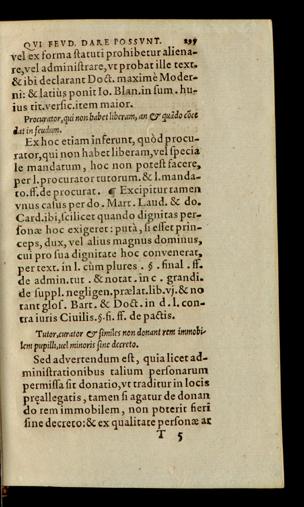 QVI FEVD. DARE POSSVNT. 299
vel ex forma statuti prohibetur aliena-
re, vel administrare, vt probat ille text.
& ibi declarant Doct. maximè Moder-
ni: & latiùs ponit Io. Blan. in sum. hu-
ius tit. versic. item maior.
Procurator, qui non habet liberam, an & quãdo cõce
dat in feudum.
Ex hoc etiam inferunt, quòd procu-
rator, qui non habet liberam, vel specia
le mandatum, hoc non potest facere,
per l. procurator tutorum. & l. manda-
to. ff. de procurat. ¶ Excipitur tamen
vnus casus per do. Mart. Laud. & do.
Card. ibi, scilicet quando dignitas per-
sonæ hoc exigeret: putà, si esset prin-
ceps, dux, vel alius magnus dominus,
cui pro sua dignitate hoc convenerat,
per text. in l. cùm plures. §. final. ff.
de admin. tut. & notat. in c. grandi.
de suppl. negligen. prælat. lib. vj. & no
tant glos. Bart. & Doct. in d. l. con-
tra iuris Ciuilis. §. fi. ff. de pactis.
Tutor, curator & similes non donant rem immobi-
lem pupilli, uel minoris sine decreto.
Sed advertendum est, quia licet ad-
ministrationibus talium personarum
permissa sit donatio, vt traditur in locis
pręallegatis, tamen si agatur de donan
do rem immobilem, non poterit fieri
sine decreto: & ex qualitate personæ at
T 5